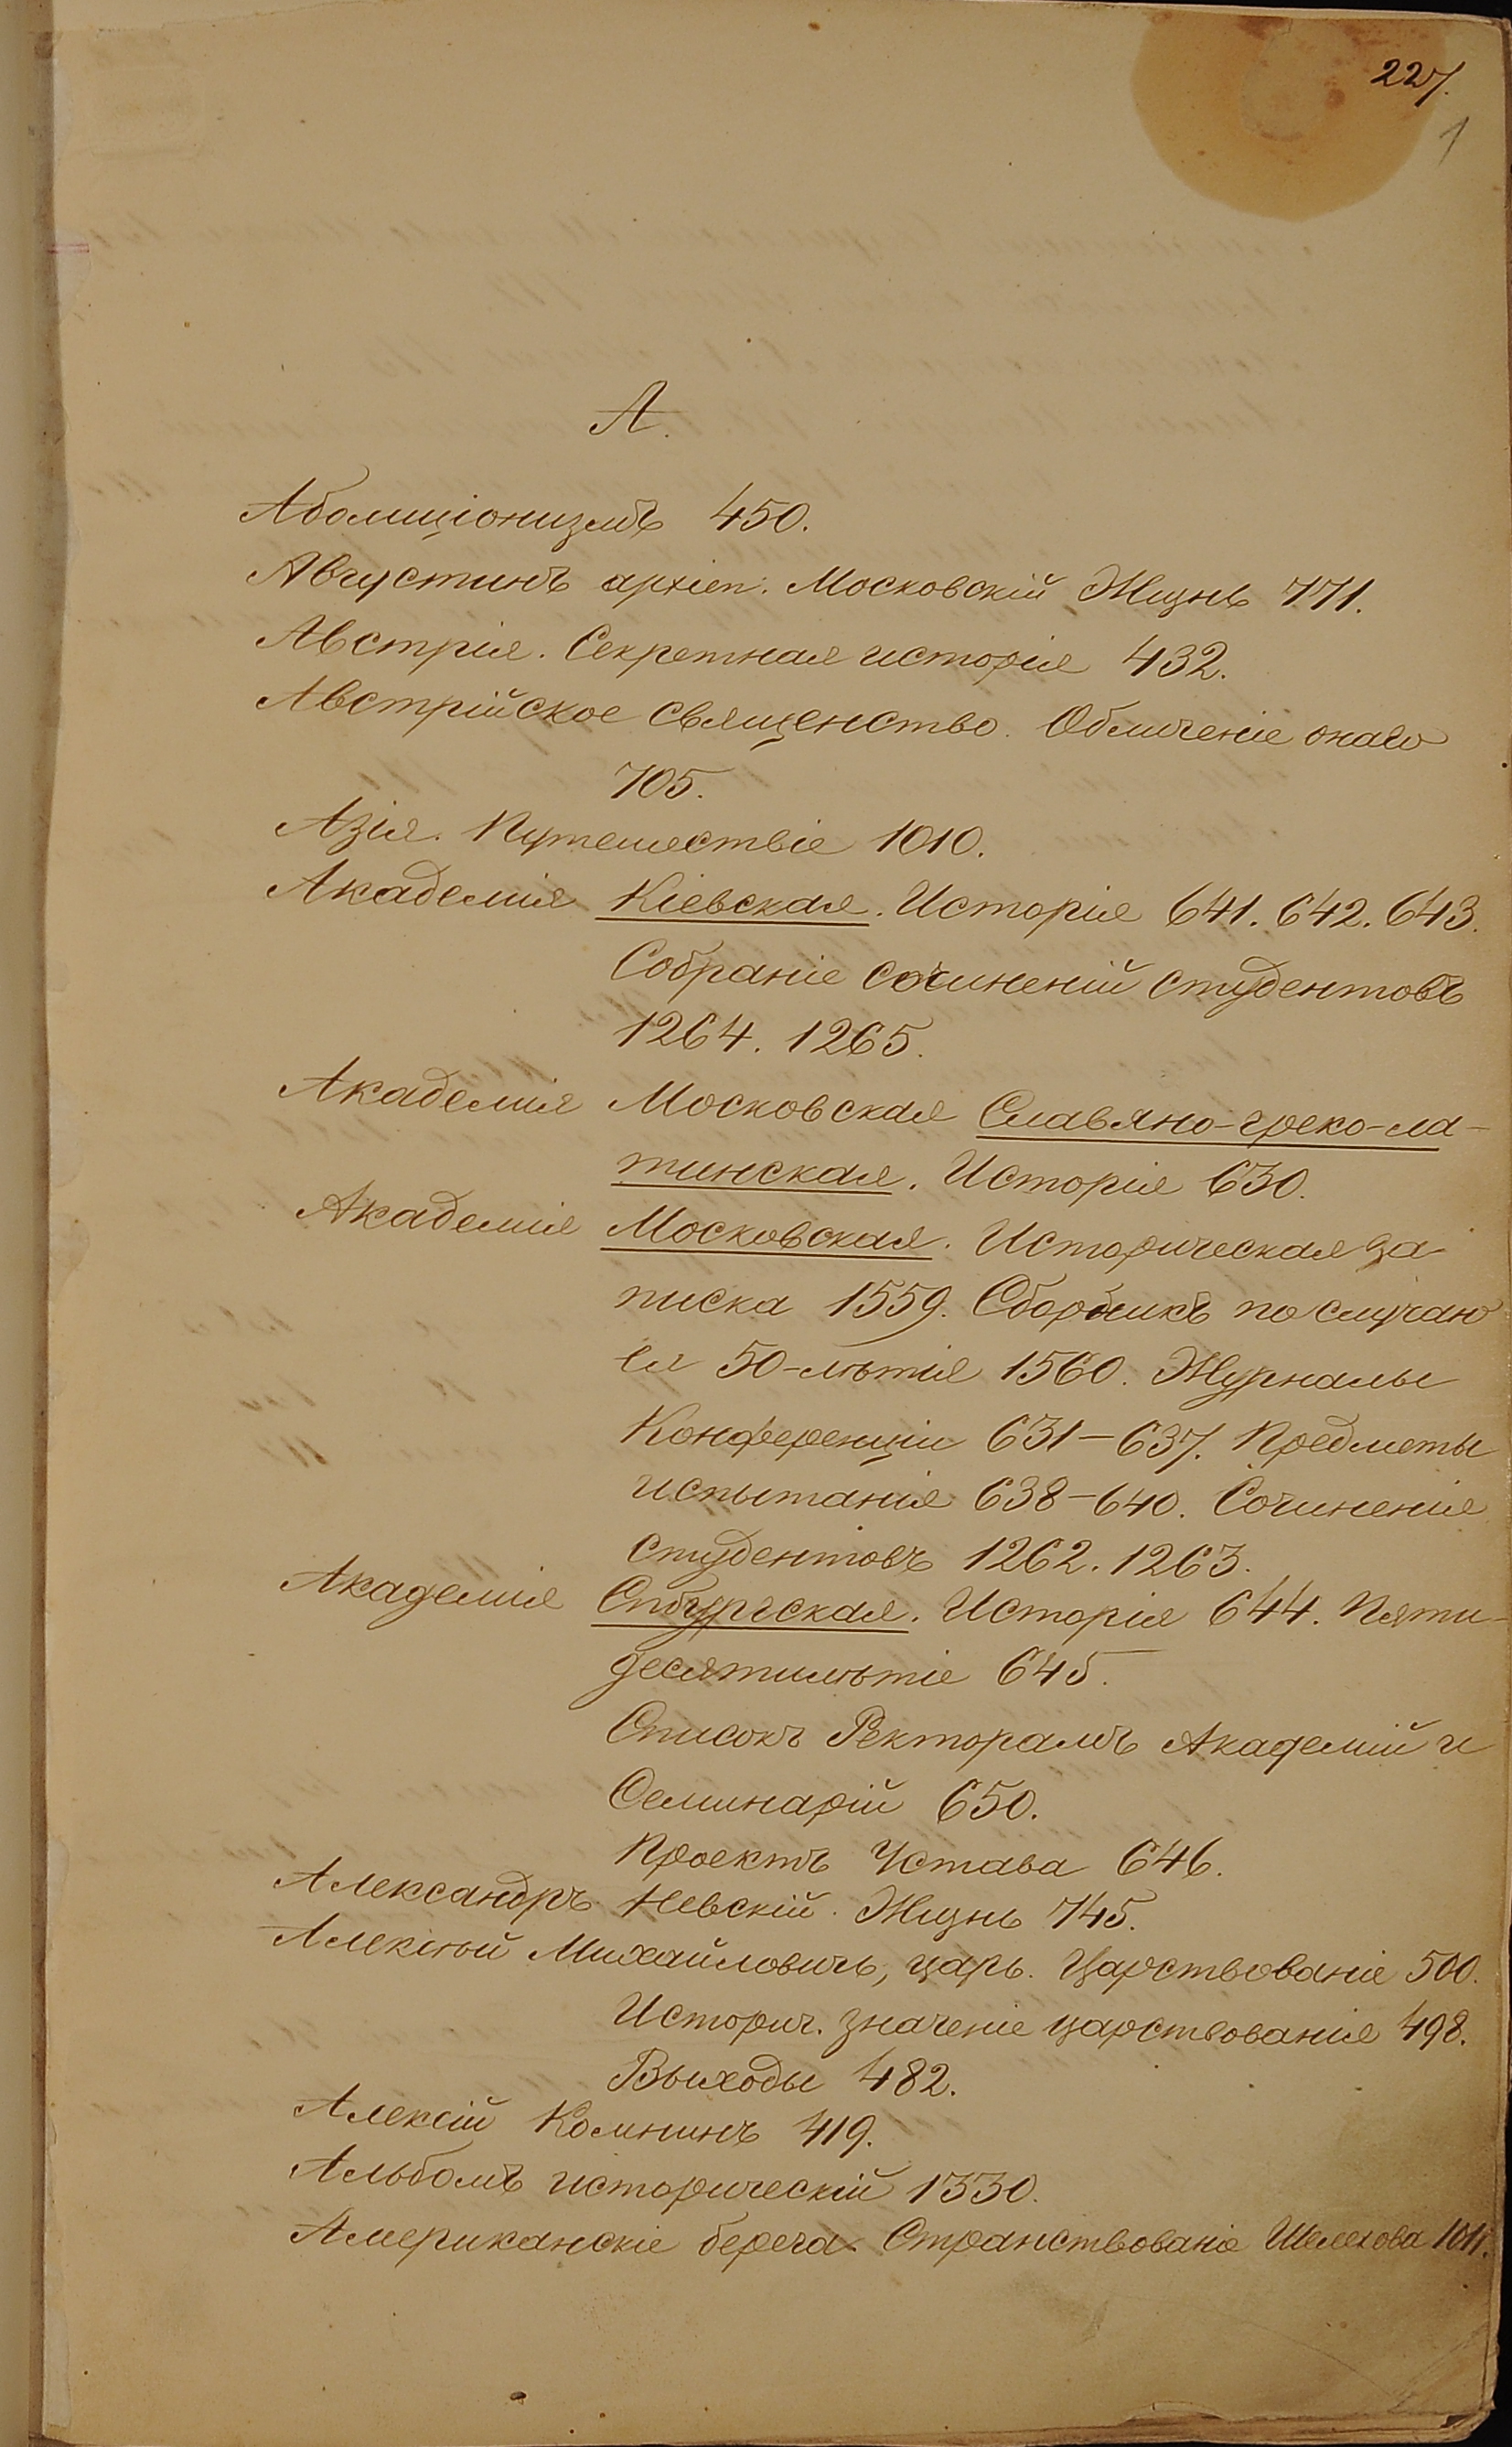 227.
1
А.
Аболиціонизмъ 450.
Августинъ архіеп. Московскій Жизнь 771.
Австрія. Секретная исторія 432.
Австрійское священство. Обличеніе онаго
705.
Азія. Путешествіе 1010.
Академія Кіевская. Исторія 641. 642. 643.
Собраніе сочиненій студентовъ
1264. 1265.
Академія Московская Славяно-греко-ла-
тинская. Исторія 630.
Академія Московская. Историческая за-
писка 1559. Сборникъ по случаю
ея 50-лѣтія 1560. Журналы
Конференціи 631-637. Предметы
испытанія 638-640. Сочиненія
студентовъ 1262. 1263.
Академія Спбургская. Исторія 644. Пяти-
десятилѣтіе 645.
Списокъ Ректорамъ Академій и
Семинарій 650.
Проектъ Устава 646.
Александръ Невскій. Жизнь 745.
Алексѣй Михайловичъ, царь. Царствованіе 500.
Историч. значеніе царствованія 498.
Выходы 482.
Алексій Комнинъ 419.
Альбомъ историческій 1330.
Американскіе берега. Странствованіе Шелехова 1011.